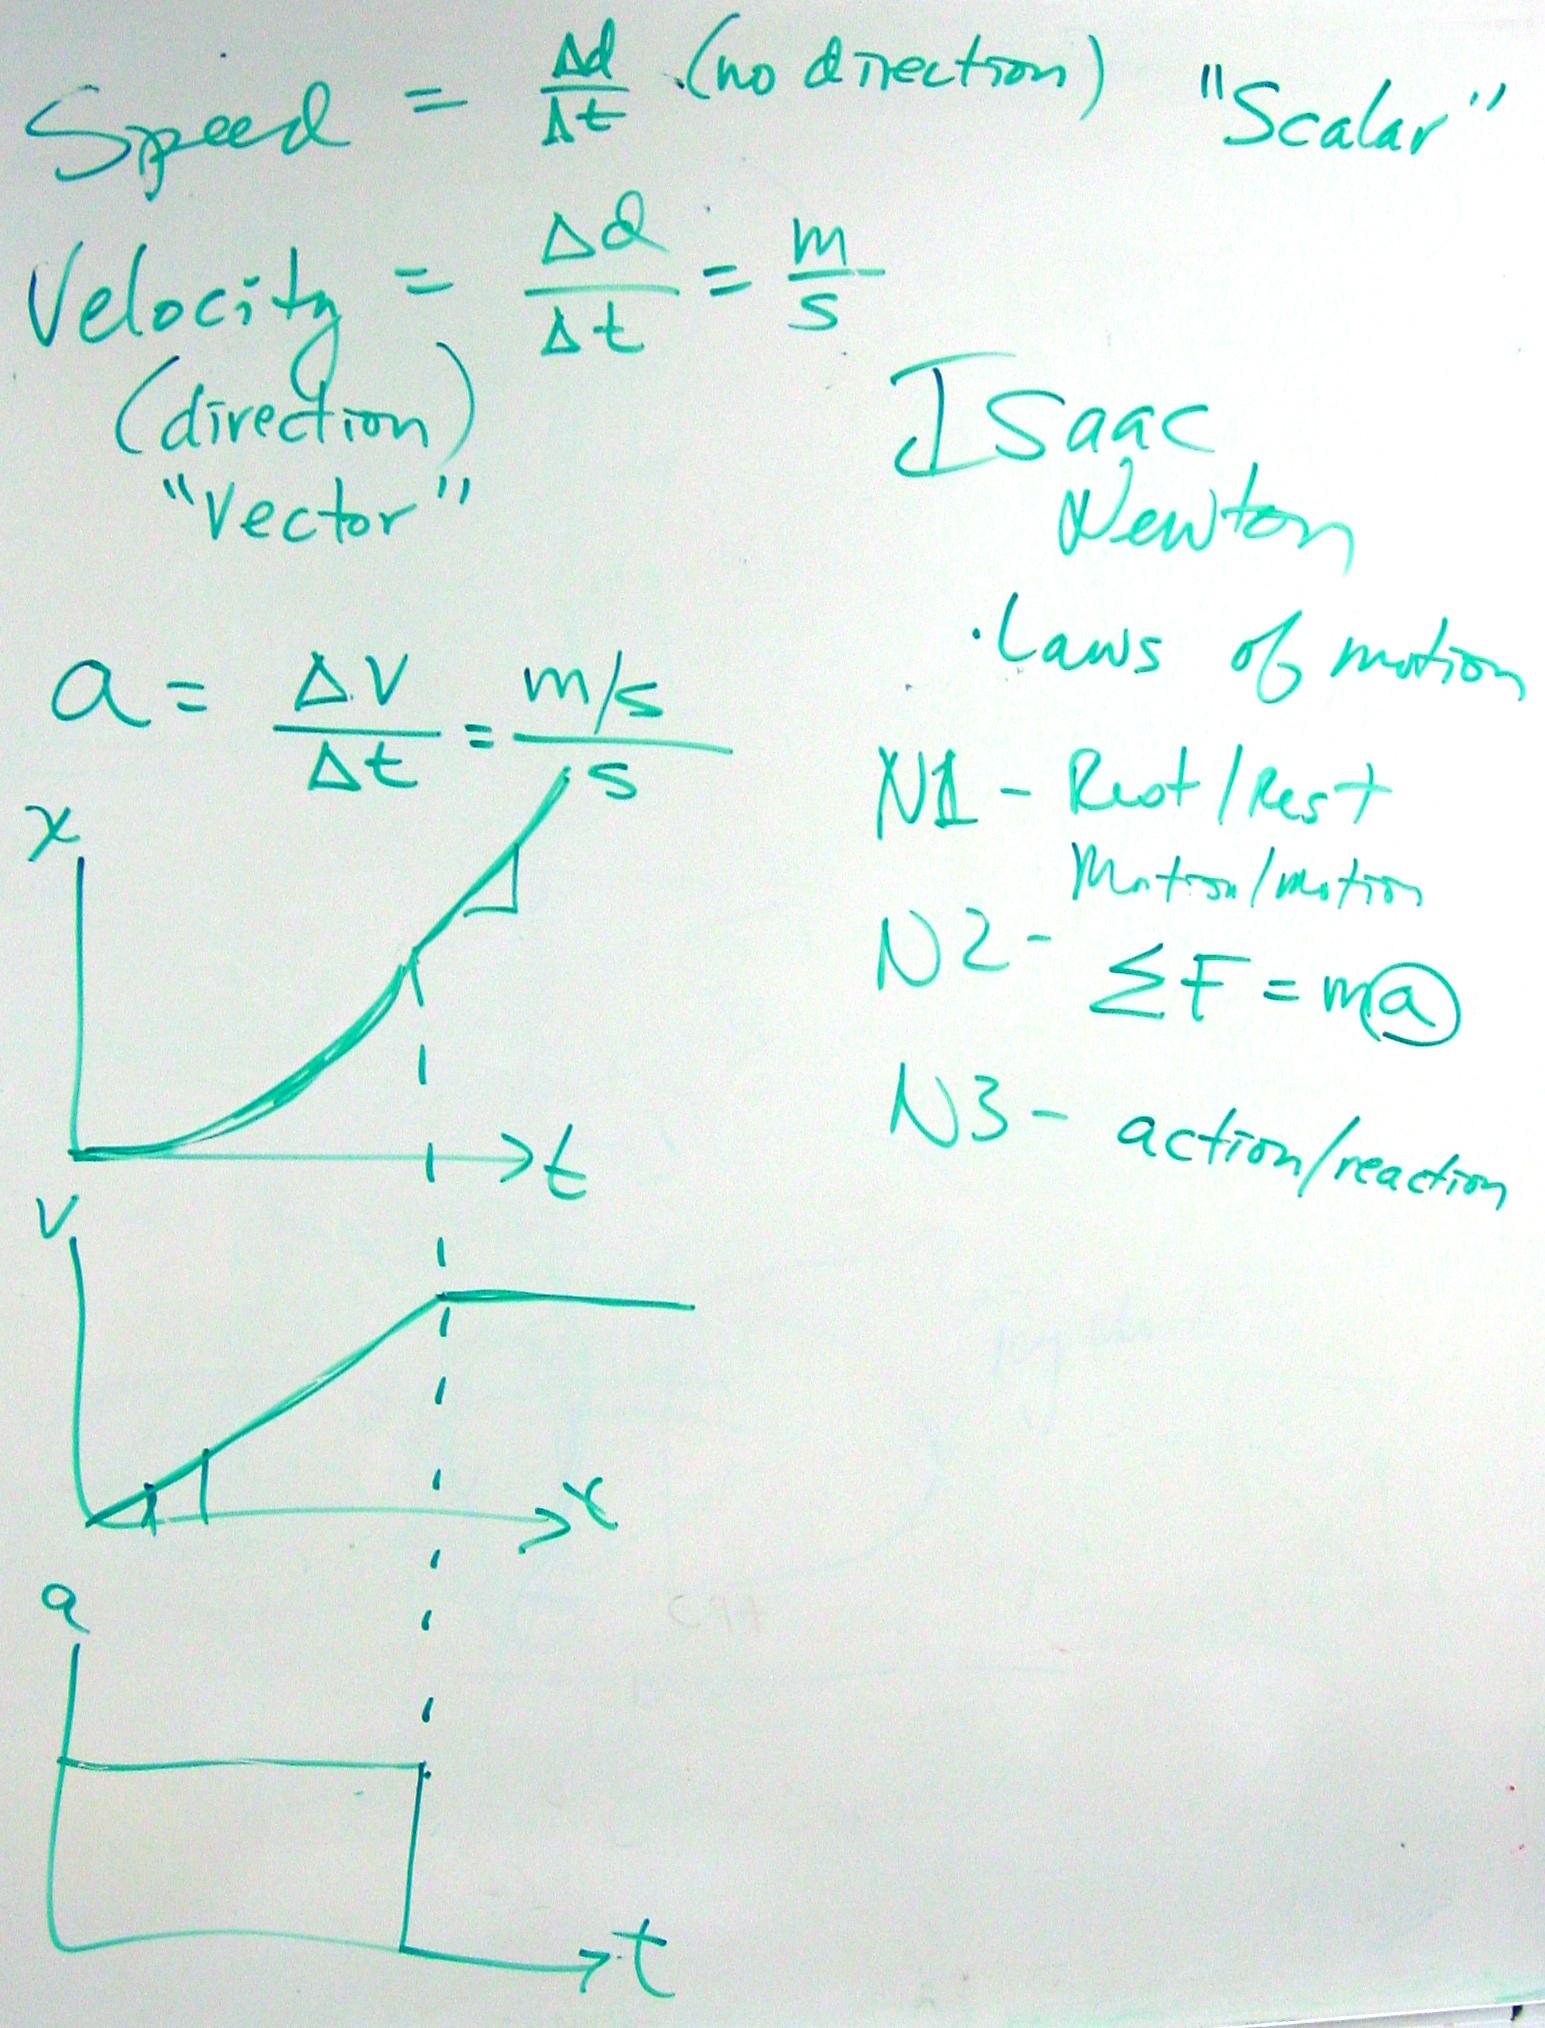 Speed = Δd/Δt (no direction) "Scalar"
Velocity = Δd/Δt = m/s
(direction)
"Vector"
a = ΔV/Δt = m/s/s
x
t
v
a
t
Isaac
Newton
·Laws of motion
N1 - Rest/Rest
Motion/motion
N2 - ΣF = ma
N3 - action/reaction